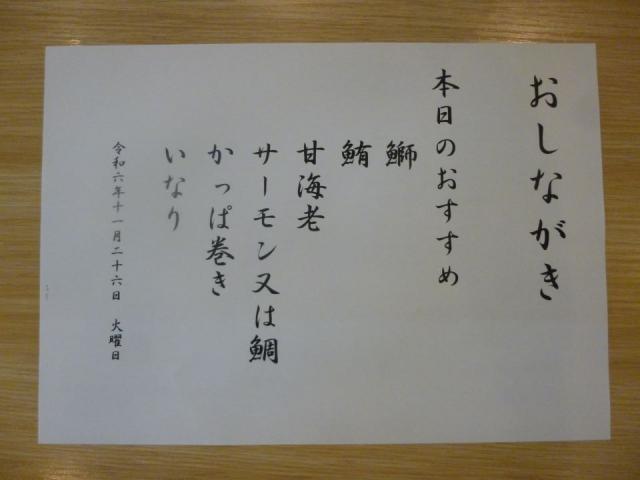 おしながき
本日のおすすめ
鰤
鮪
甘海老
サーモン又は鯛
かっぱ巻き
いなり
令和六年十一月二十六日　火曜日